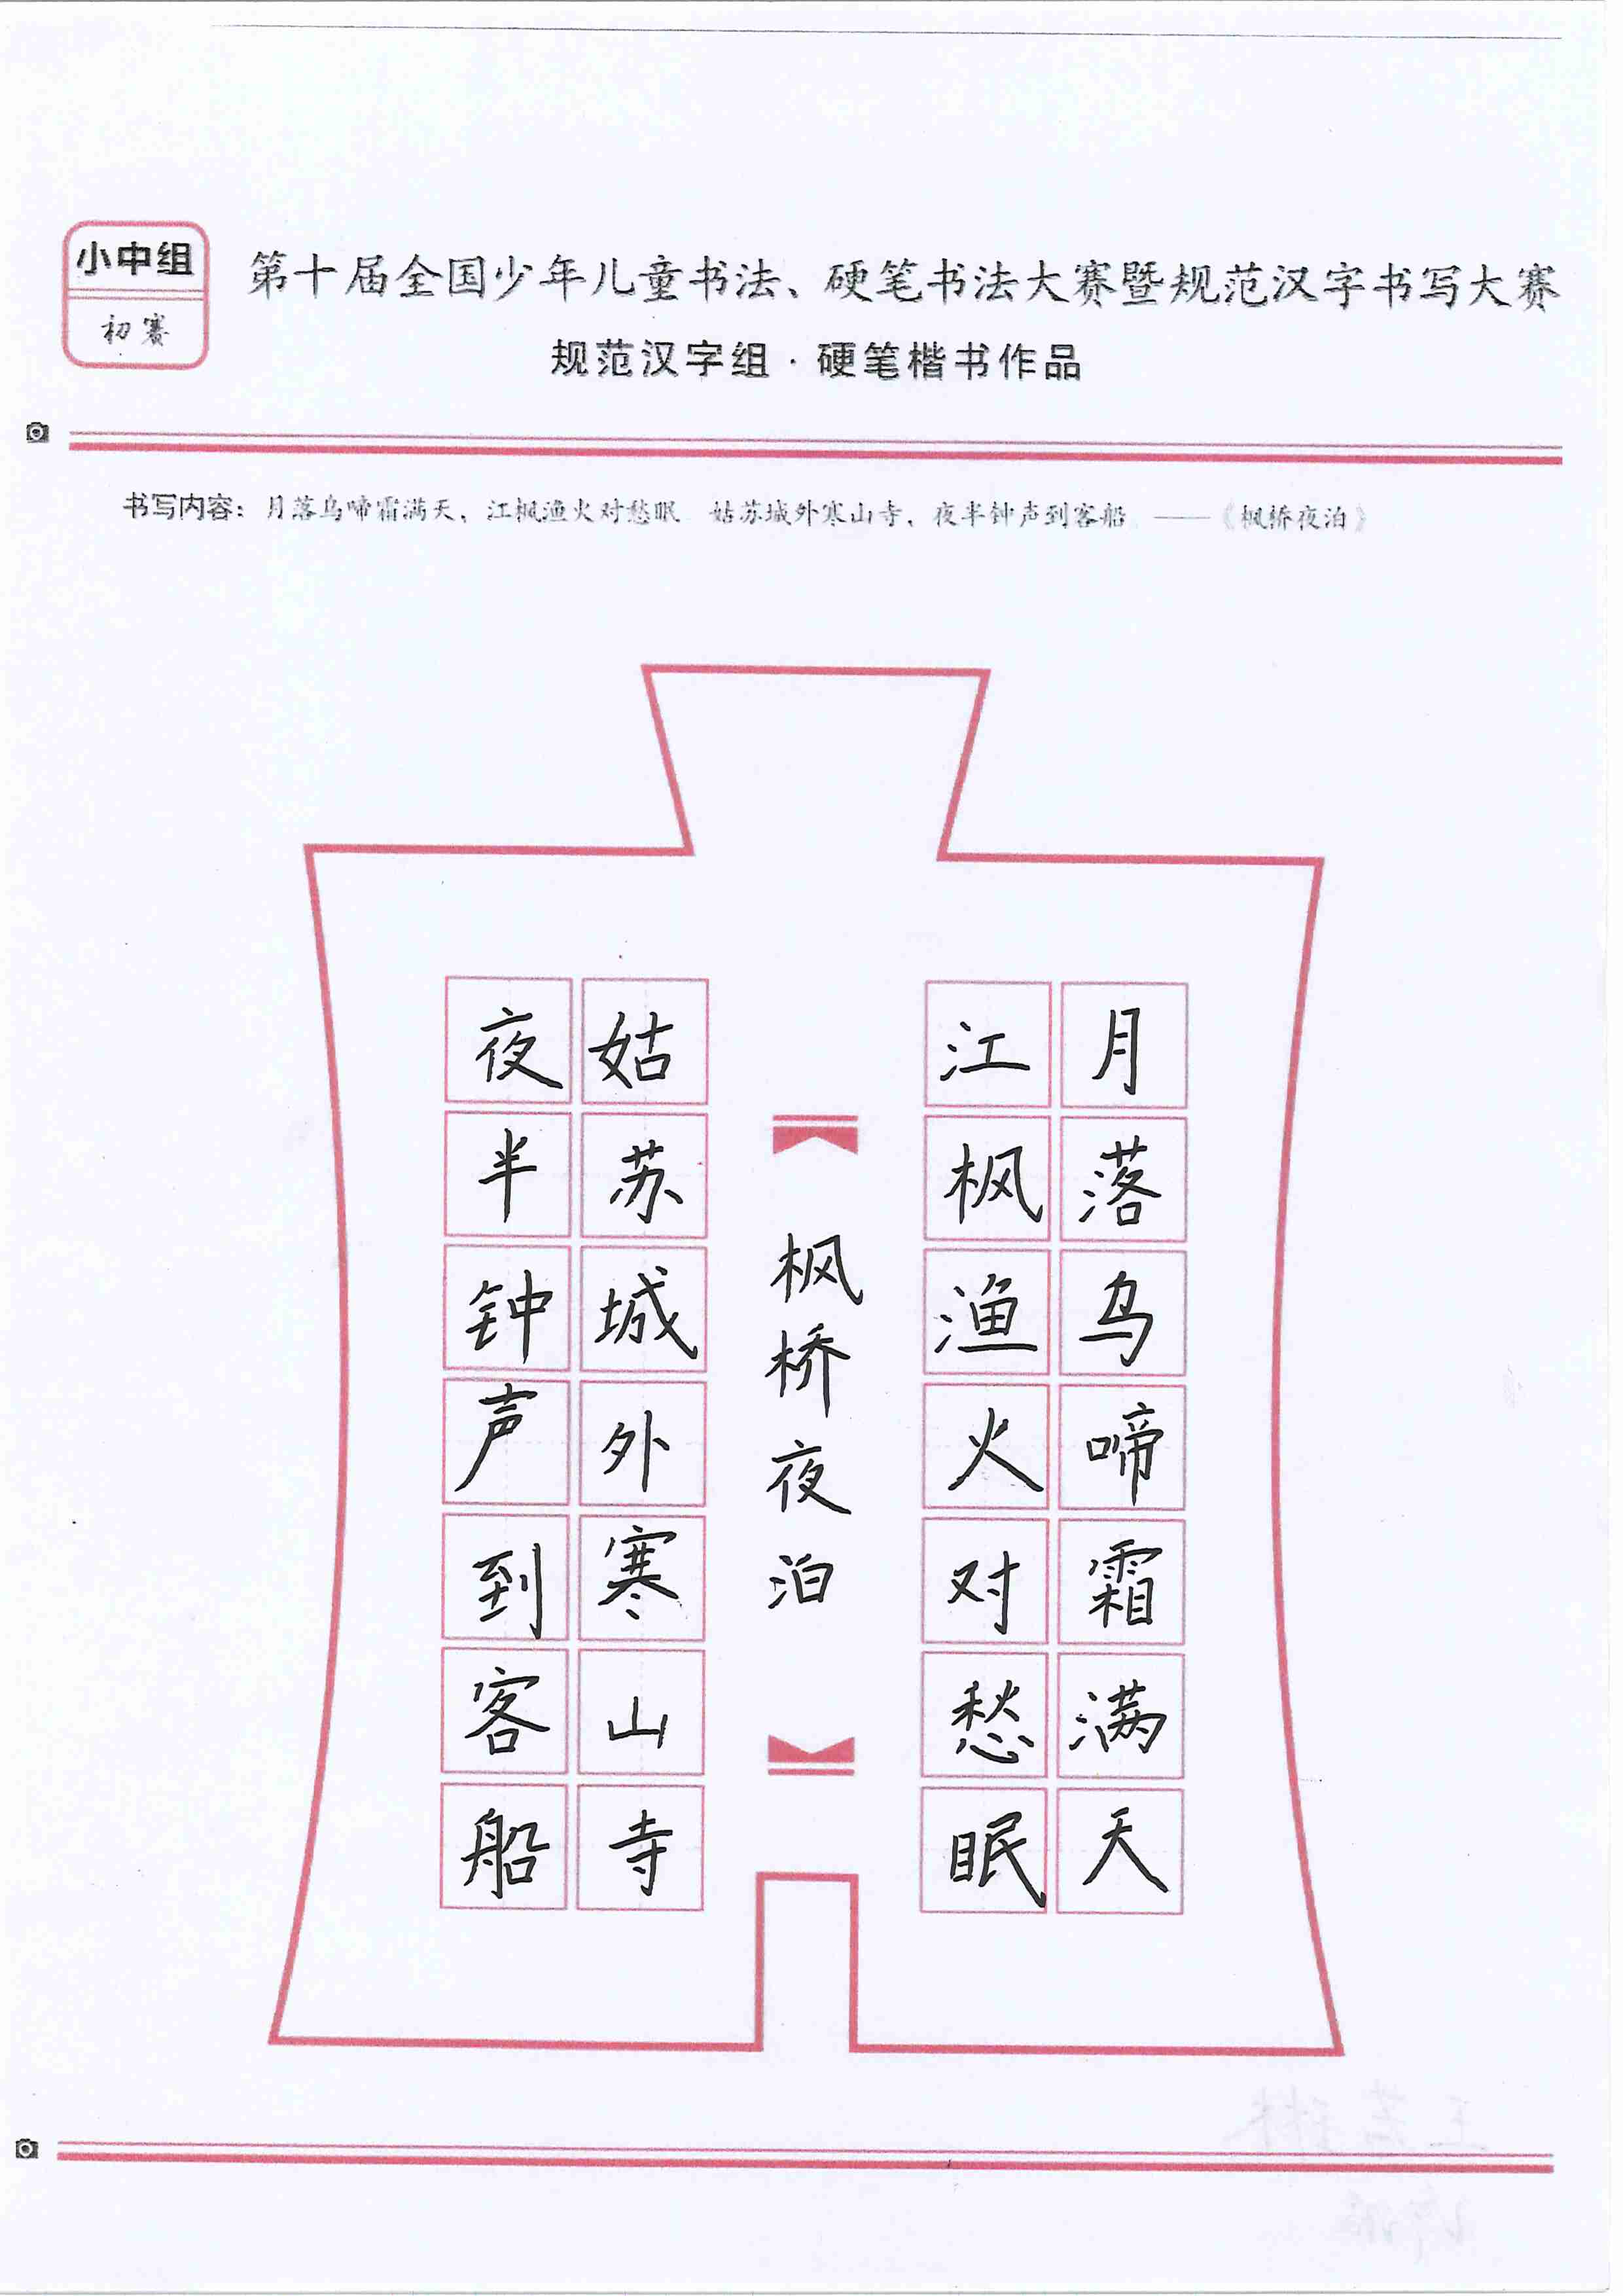 小中组
初赛
第十届全国少年儿童书法、硬笔书法大赛暨规范汉字书写大赛
规范汉字组·硬笔楷书作品
书写内容：月落乌啼霜满天，江枫渔火对愁眠 姑苏城外寒山寺，夜半钟声到客船 ——《枫桥夜泊》
月落乌啼霜满天
江枫渔火对愁眠
枫桥夜泊
姑苏城外寒山寺
夜半钟声到客船